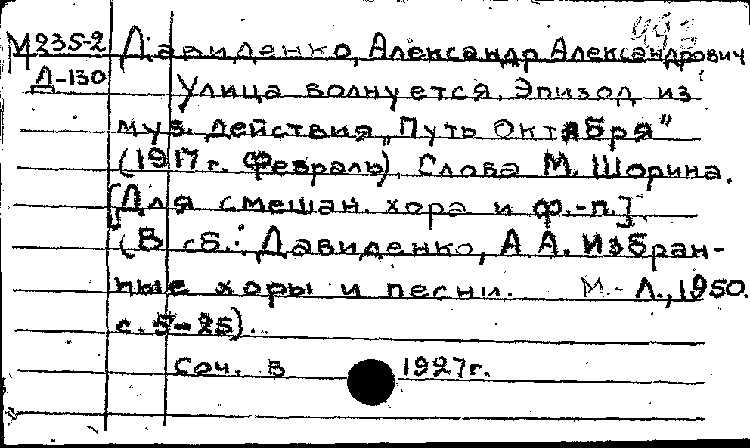 М235-2 Давиденко, Александр Александрович
Д-130
Улица волнуется. Эпизод из
муз. действия „Путь Октября"
(1917 г. Февраль). Слова М. Шорина.
[Для смешан. хора и ф.-п.]
(В сб.: Давиденко, А А. Избран-
ные хоры и песни. М.-Л., 1950.
с. 5-25).
Соч. в 1927г.